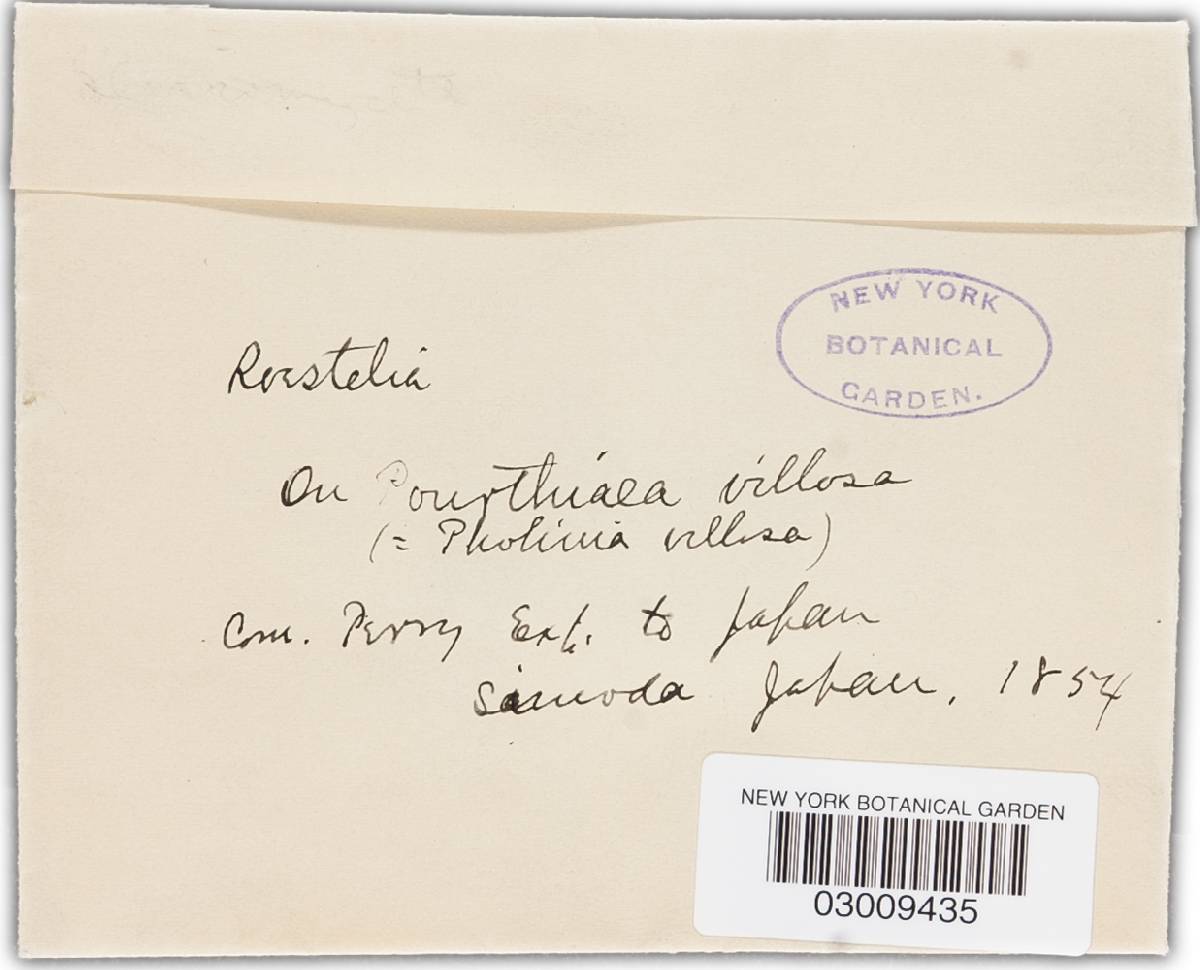 NEW YORK
BOTANICAL
GARDEN.
Roestelia
On Pourthiaea villosa
(= Photinia villosa)
Com. Perry Exp. to Japan
Simoda Japan, 1854
NEW YORK BOTANICAL GARDEN
03009435